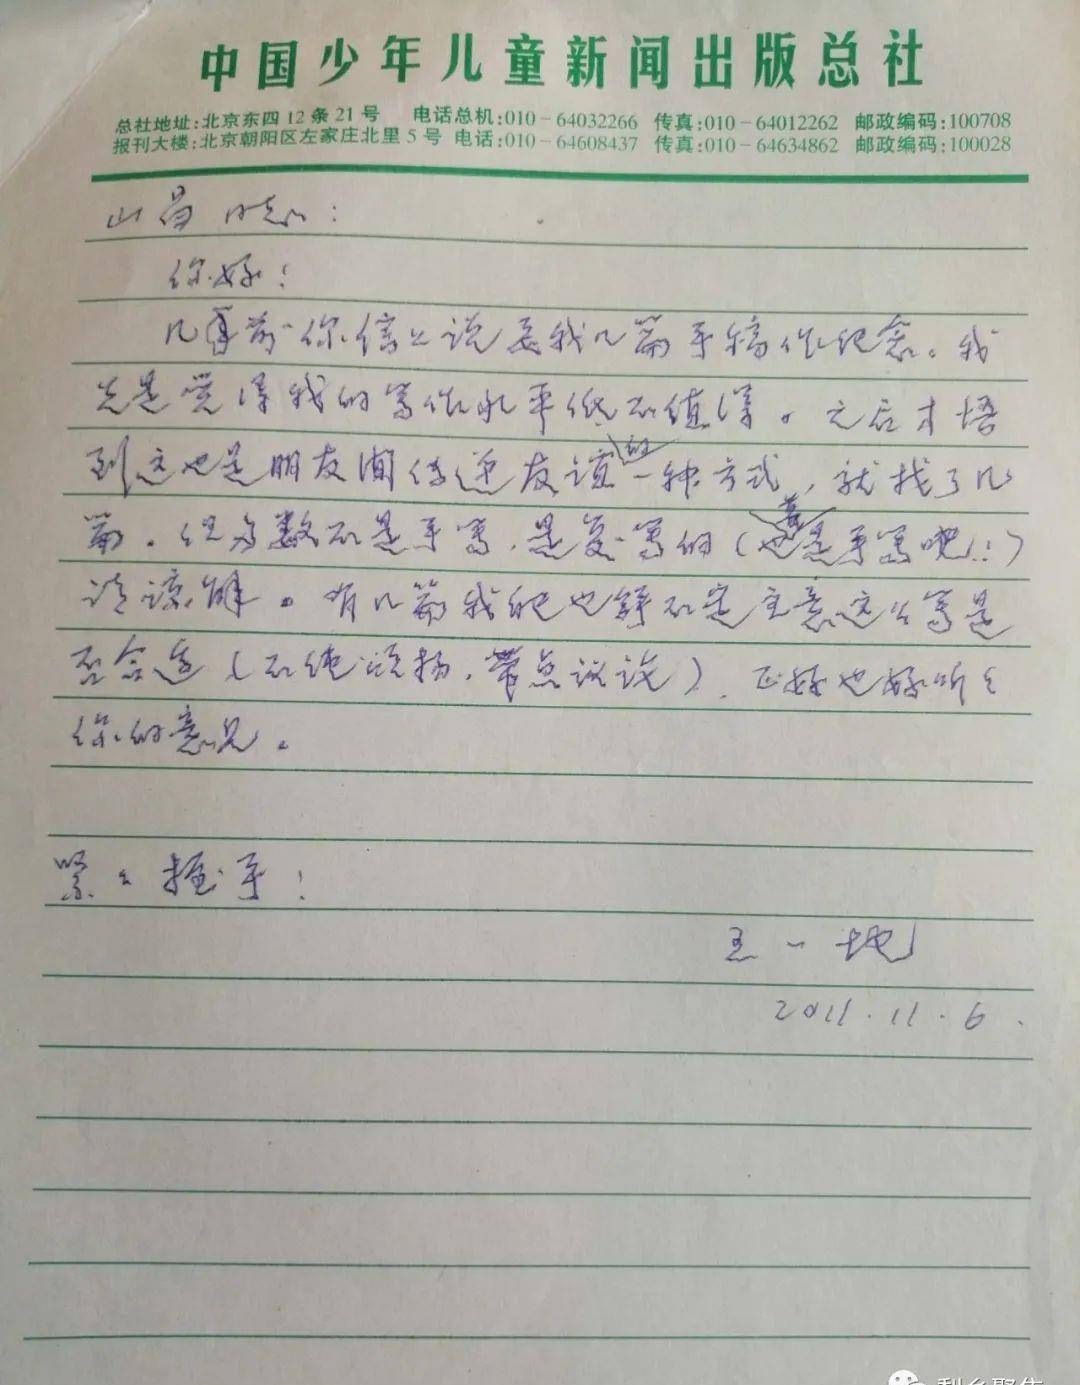 中国少年儿童新闻出版总社
总社地址:北京东四12条21号 电话总机:010-64032266 传真:010-64012262 邮政编码:100708
报刊大楼:北京朝阳区左家庄北里5号 电话:010-64608437 传真:010-64634862 邮政编码:100028
山 同志:
你好!
几年前你信上说要我几篇手稿作纪念。我
先是觉得我的写作水平低不值得。之后才悟
到这也是朋友间传递友谊的一种方式,就找了几
篇。但多数不是手写,是复写的(也是手写吧!)
请谅解。有几篇我吃也拿不定主意这么写是
否合适(不纯颂扬,带点议论),正好也好听听
你的意见。
紧紧握手!
王一地
2011.11.6.
梨乡聚焦